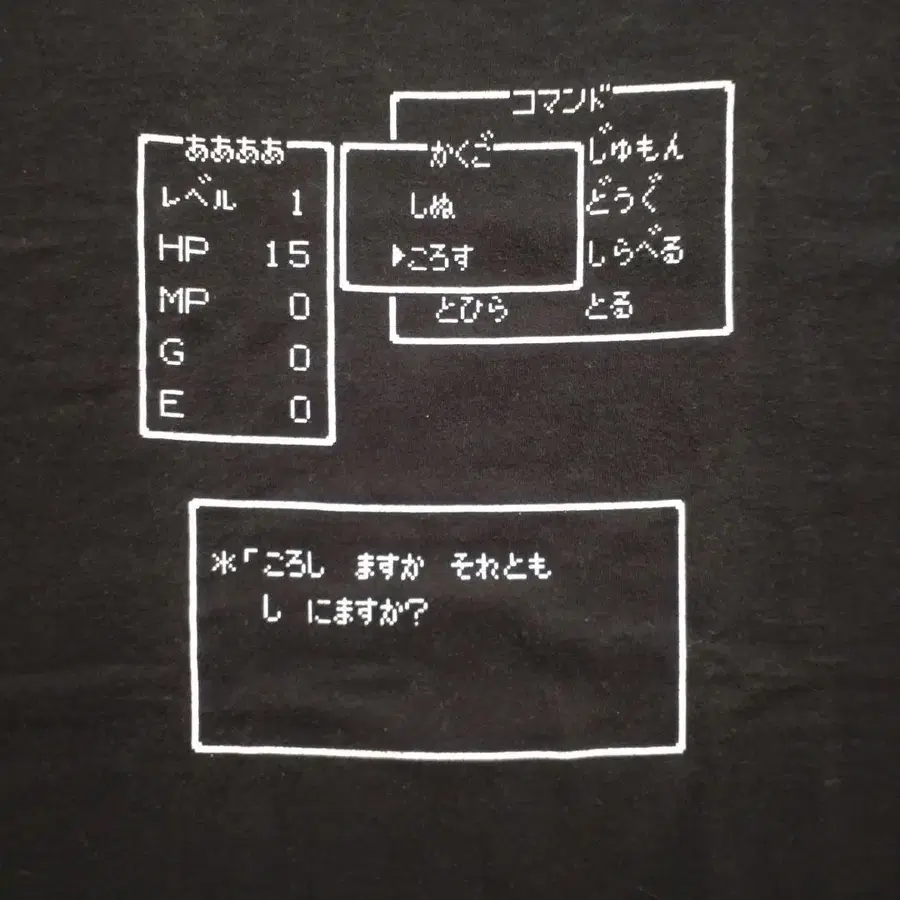 ああああ
レベル 1
HP 15
MP 0
G 0
E 0
コマンド
じゅもん
どうぐ
しらべる
とびら とる
かくご
しぬ
▶ころす
*「ころし ますか それとも
し にますか?